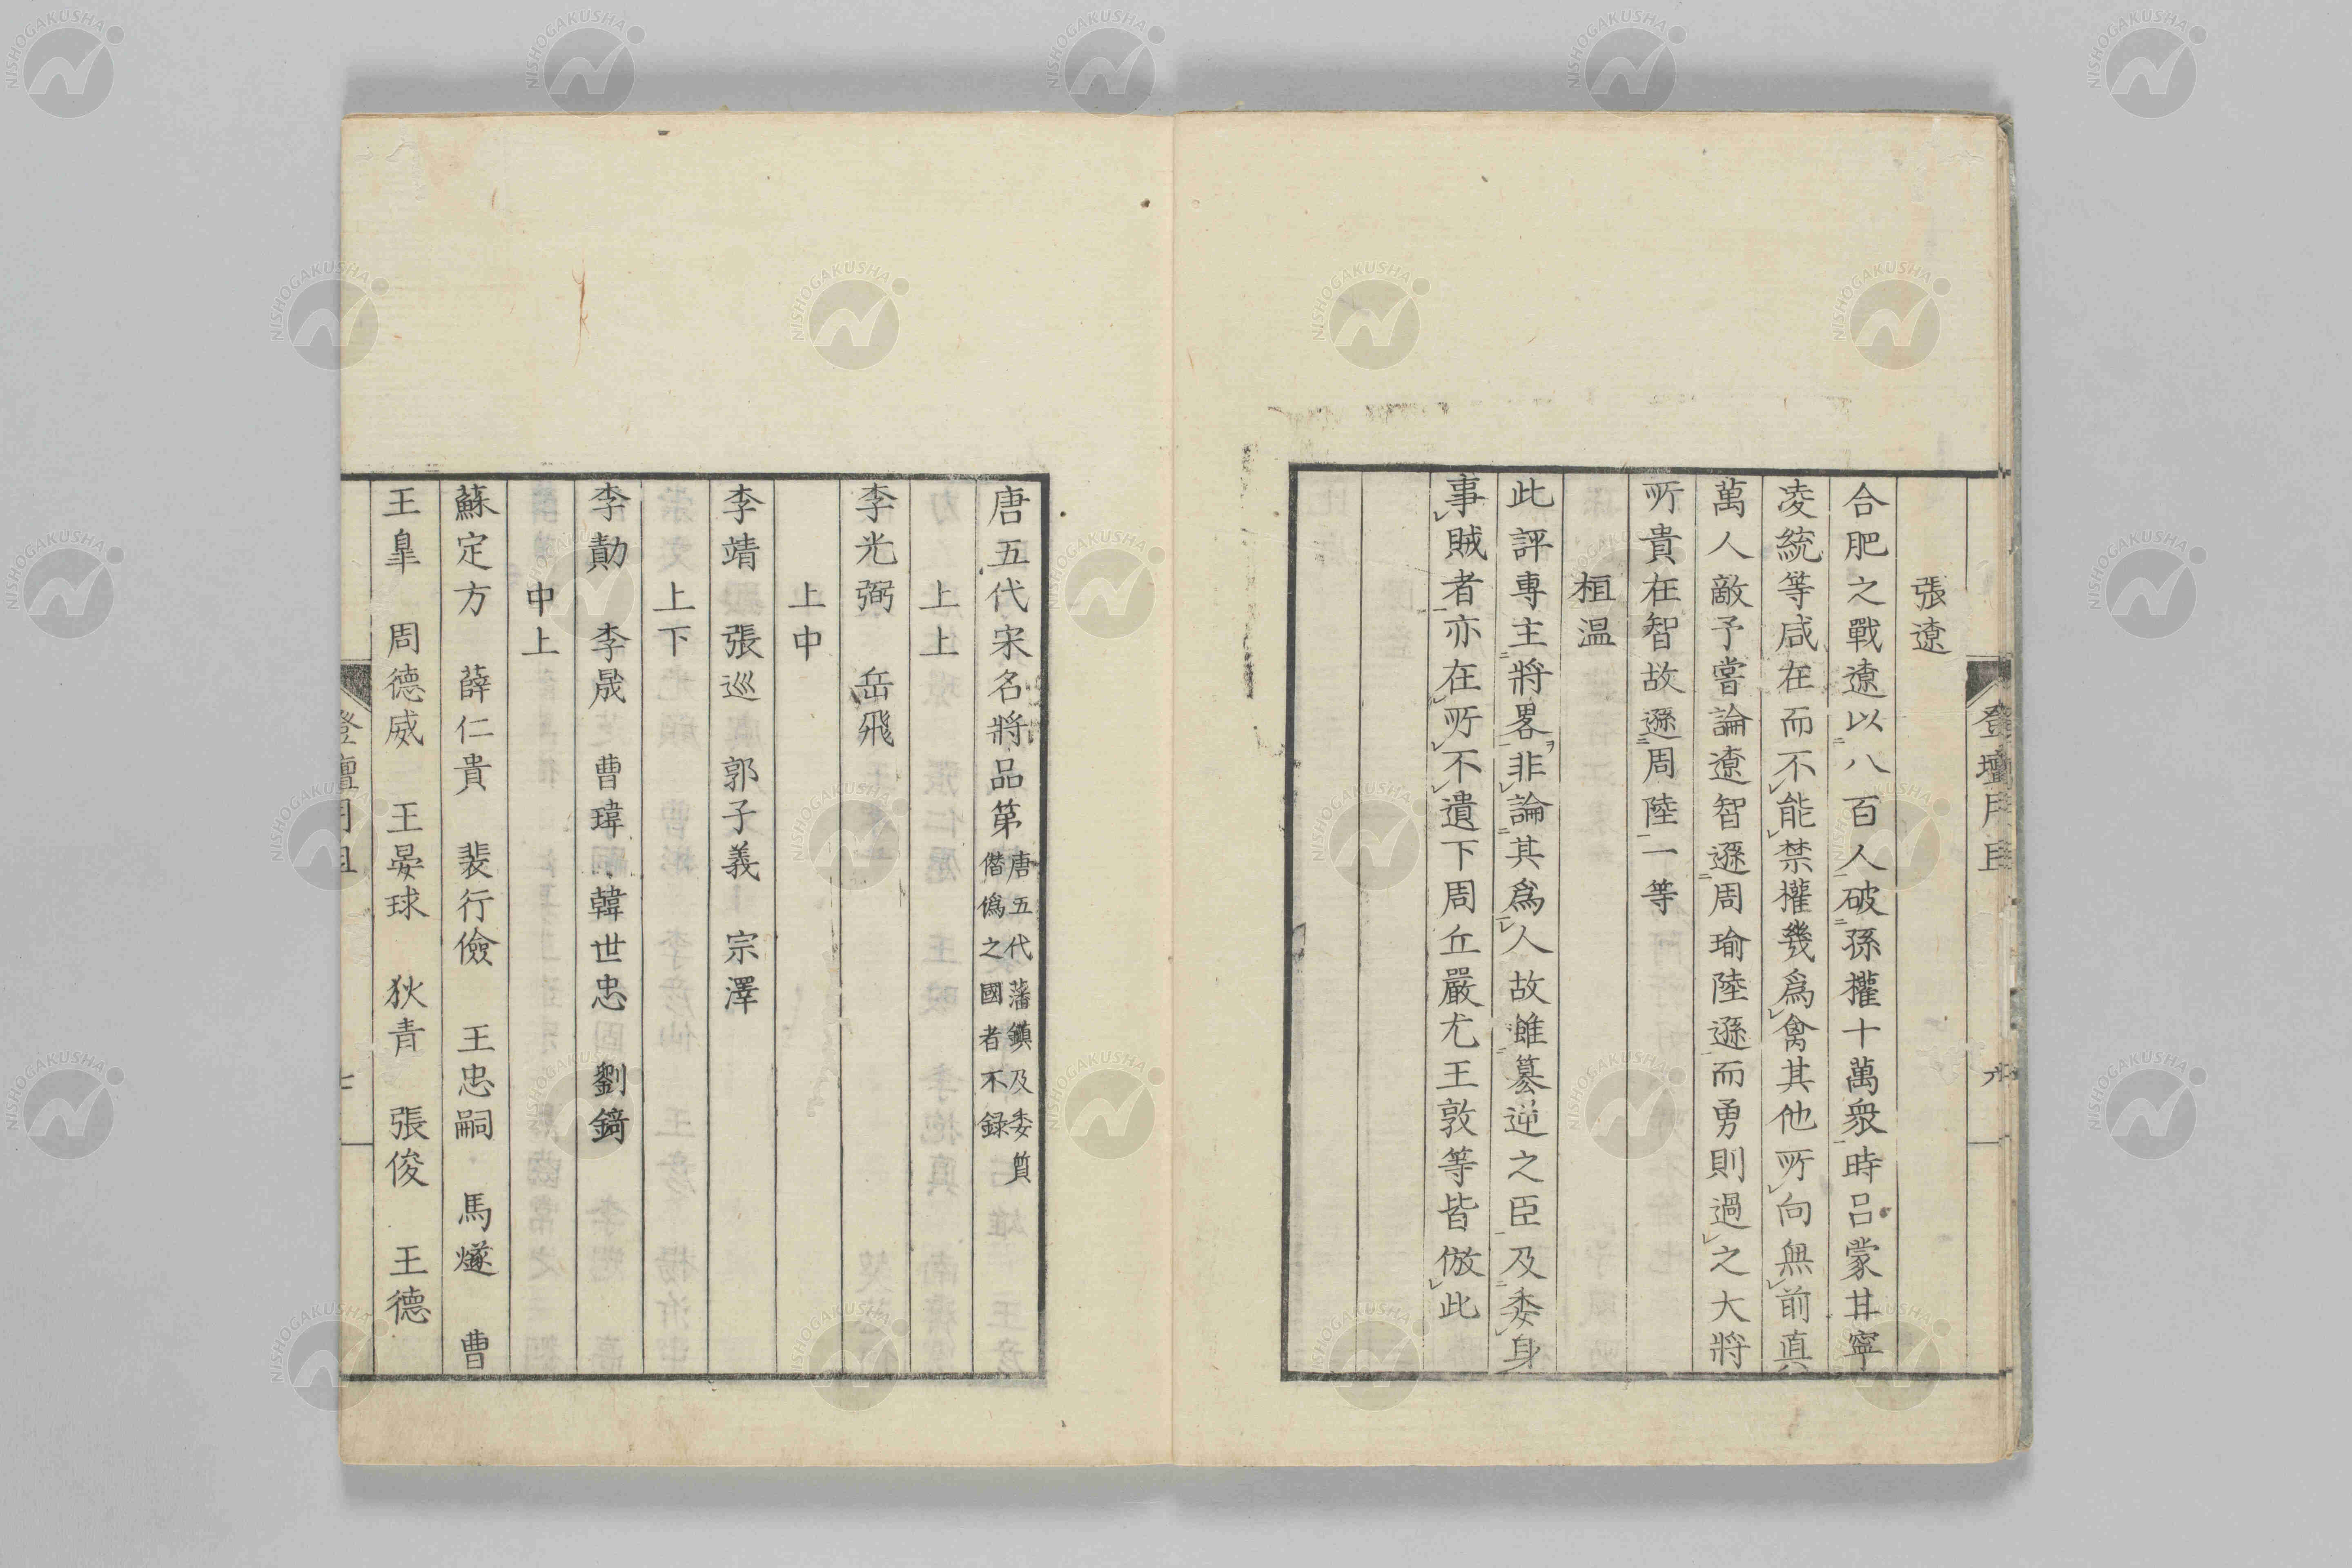 張遼
合肥之戰遼以八百人破孫權十萬衆時呂蒙甘寧
凌統等咸在而不能禁權幾爲禽其他所向無前真
萬人敵予嘗論遼智遜周瑜陸遜而勇則過之大將
所貴在智故遜周陸一等
桓温
此評專主將畧非論其爲人故雖簒逆之臣及委身
事賊者亦在所不遺下周丘嚴尤王敦等皆倣此
唐五代宋名將品第
唐五代藩鎮及委質
僭僞之國者不録
上上
李光弼 岳飛
上中
李靖 張巡 郭子義 宗澤
上下
李勣 李晟 曹瑋 韓世忠 劉錡
中上
蘇定方 薛仁貴 裴行儉 王忠嗣 馬燧 曹
王臯 周德威 王晏球 狄青 張俊 王德
NISHOGAKUSHA